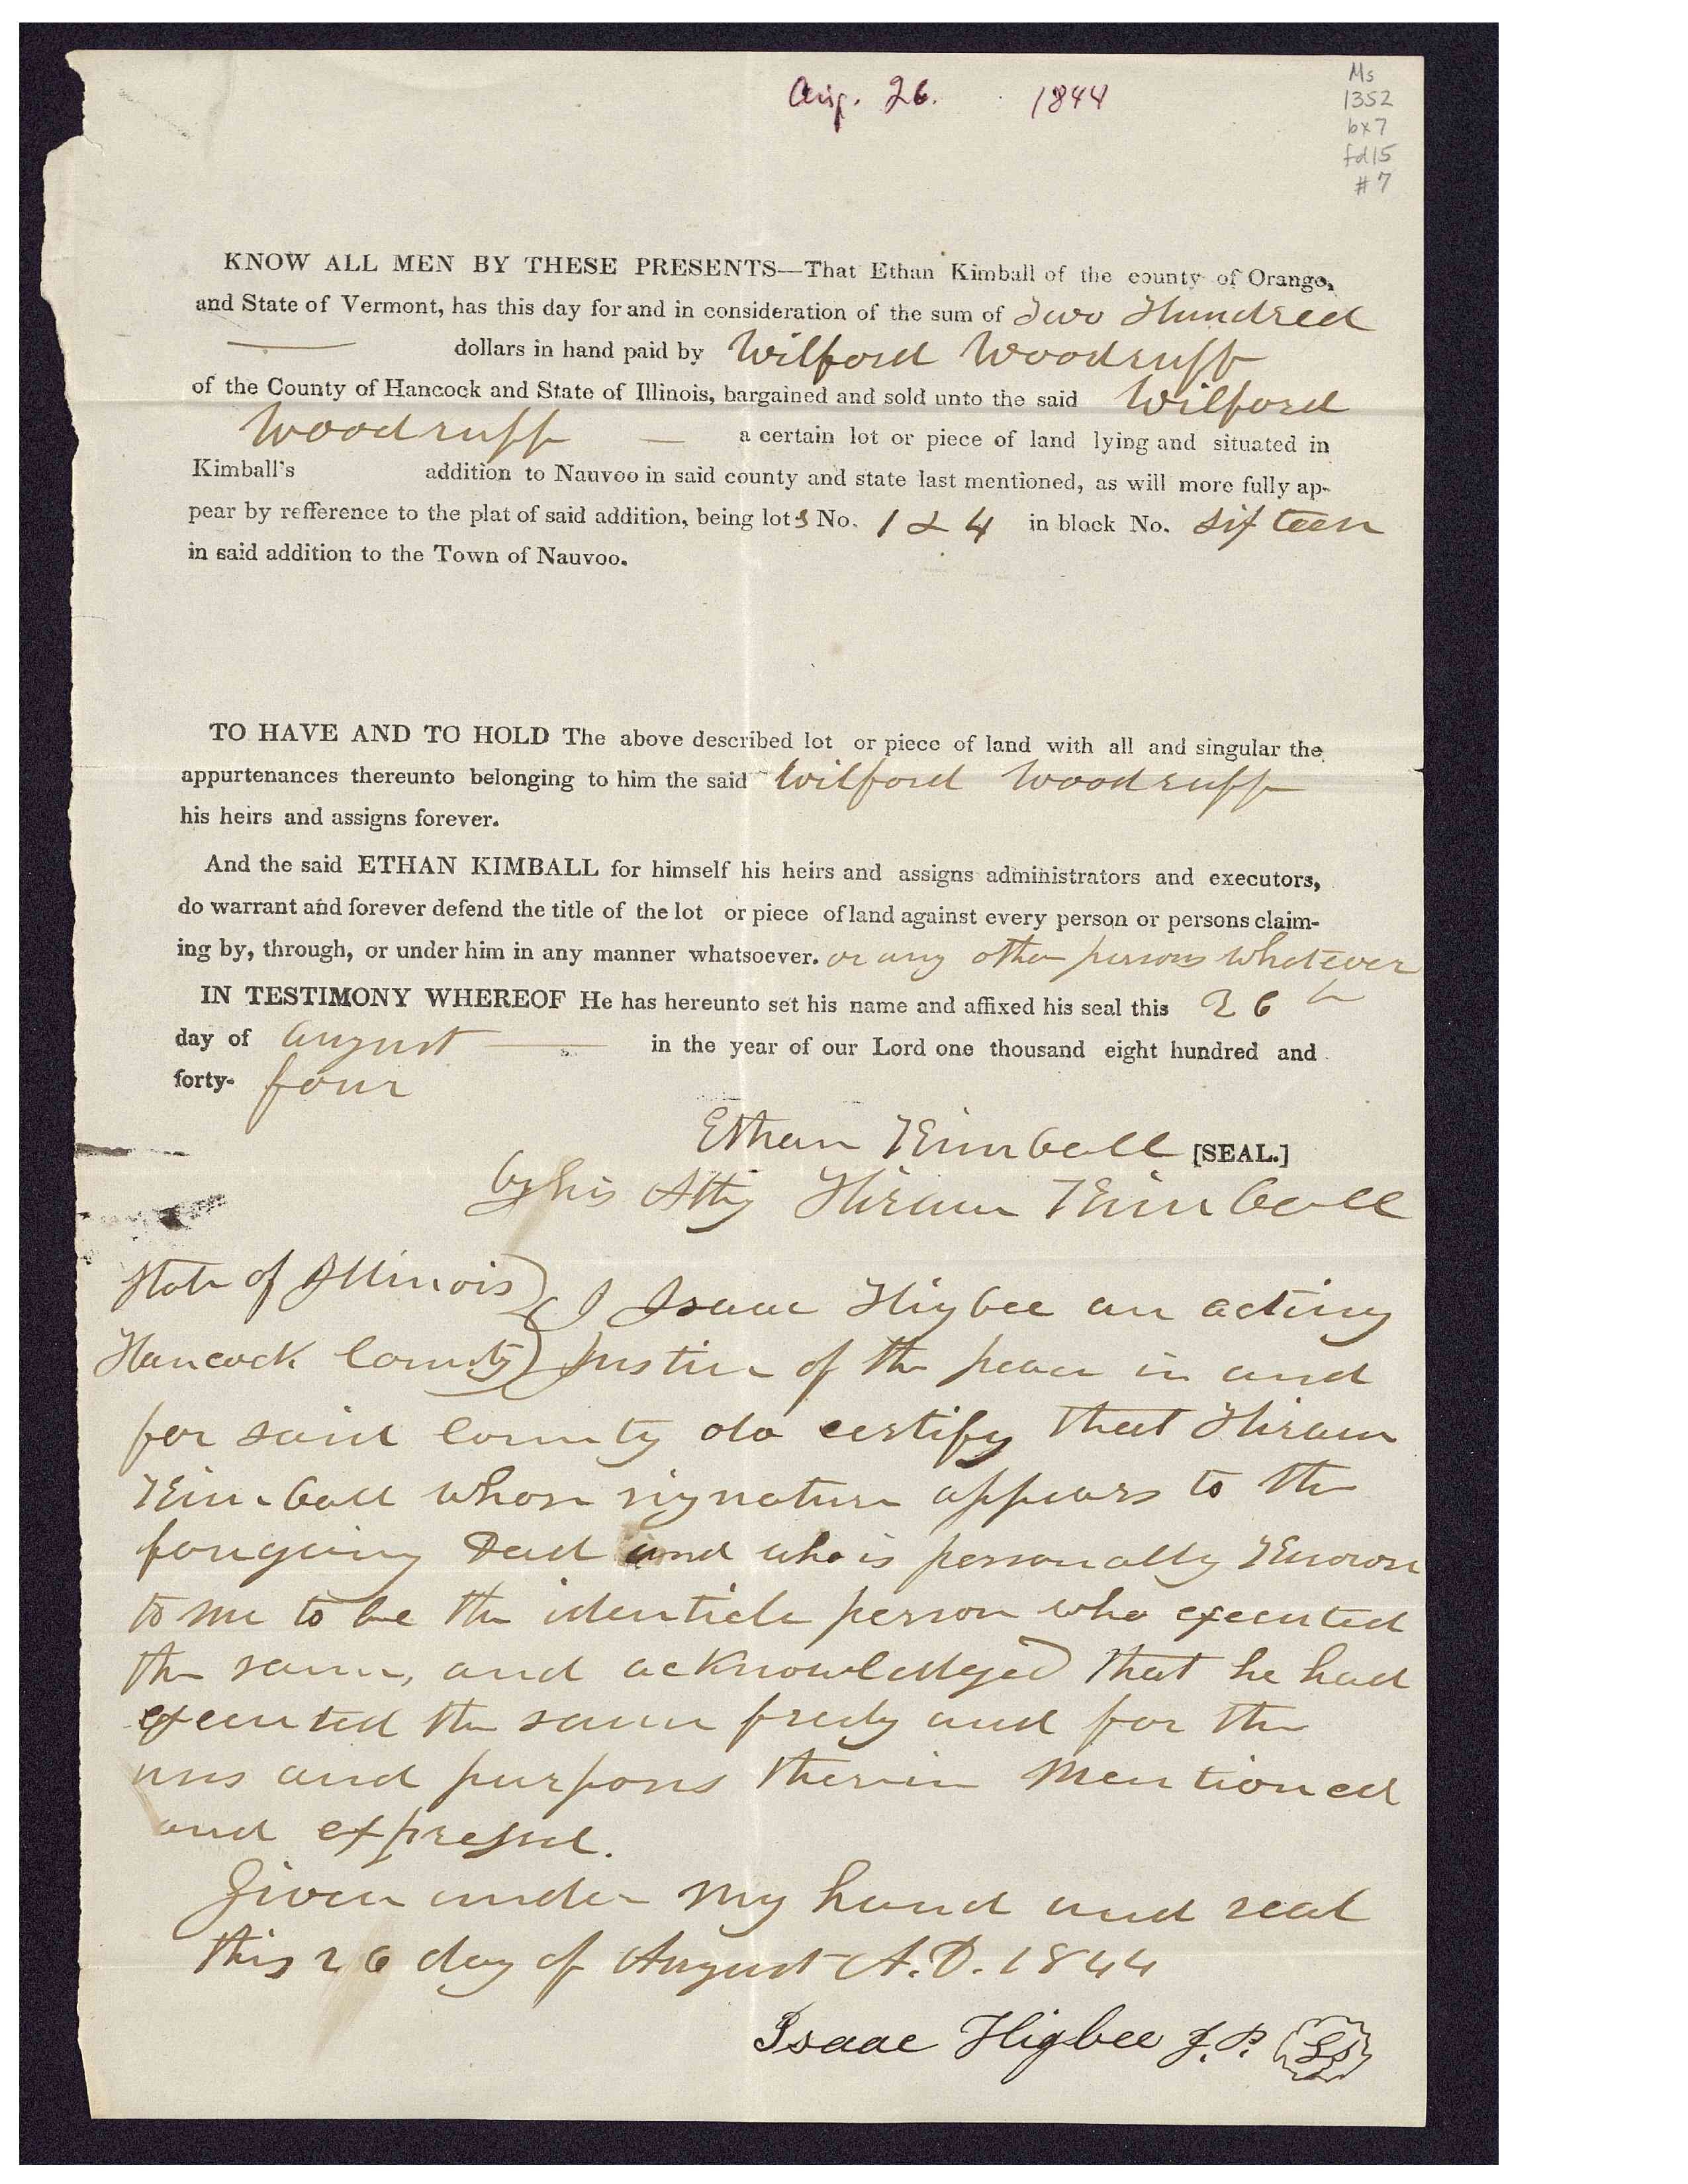 Aug. 26. 1844
Ms
1352
bx7
fd15
#7
KNOW ALL MEN BY THESE PRESENTS—That Ethan Kimball of the county of Orange,
and State of Vermont, has this day for and in consideration of the sum of Two Hundred
dollars in hand paid by Wilford Woodruff
of the County of Hancock and State of Illinois, bargained and sold unto the said Wilford
Woodruff — a certain lot or piece of land lying and situated in
Kimball's addition to Nauvoo in said county and state last mentioned, as will more fully ap-
pear by refference to the plat of said addition, being lots No. 1 & 4 in block No. sifteen
in said addition to the Town of Nauvoo.
TO HAVE AND TO HOLD The above described lot or piece of land with all and singular the
appurtenances thereunto belonging to him the said Wilford Woodruff
his heirs and assigns forever.
And the said ETHAN KIMBALL for himself his heirs and assigns administrators and executors,
do warrant and forever defend the title of the lot or piece of land against every person or persons claim-
ing by, through, or under him in any manner whatsoever. or any other persons whatever
IN TESTIMONY WHEREOF He has hereunto set his name and affixed his seal this 26th
day of August — in the year of our Lord one thousand eight hundred and
forty- four
Ethan Kimball [SEAL.]
by his Atty Hiram Kimball
State of Illinois) I Isaac Higbee an acting
Hancock County) Justice of the peace in and
for said County do certify that Hiram
Kimball whose signature appears to the
forgoing Deed and who is personally Known
to me to be the identicle person who executed
the same, and acknowledged that he had
executed the same freely and for the
uses and purposes therein Mentioned
and expressed.
Given under My hand and seal
this 26 day of August A.D. 1844
Isaac Higbee J.P. LS